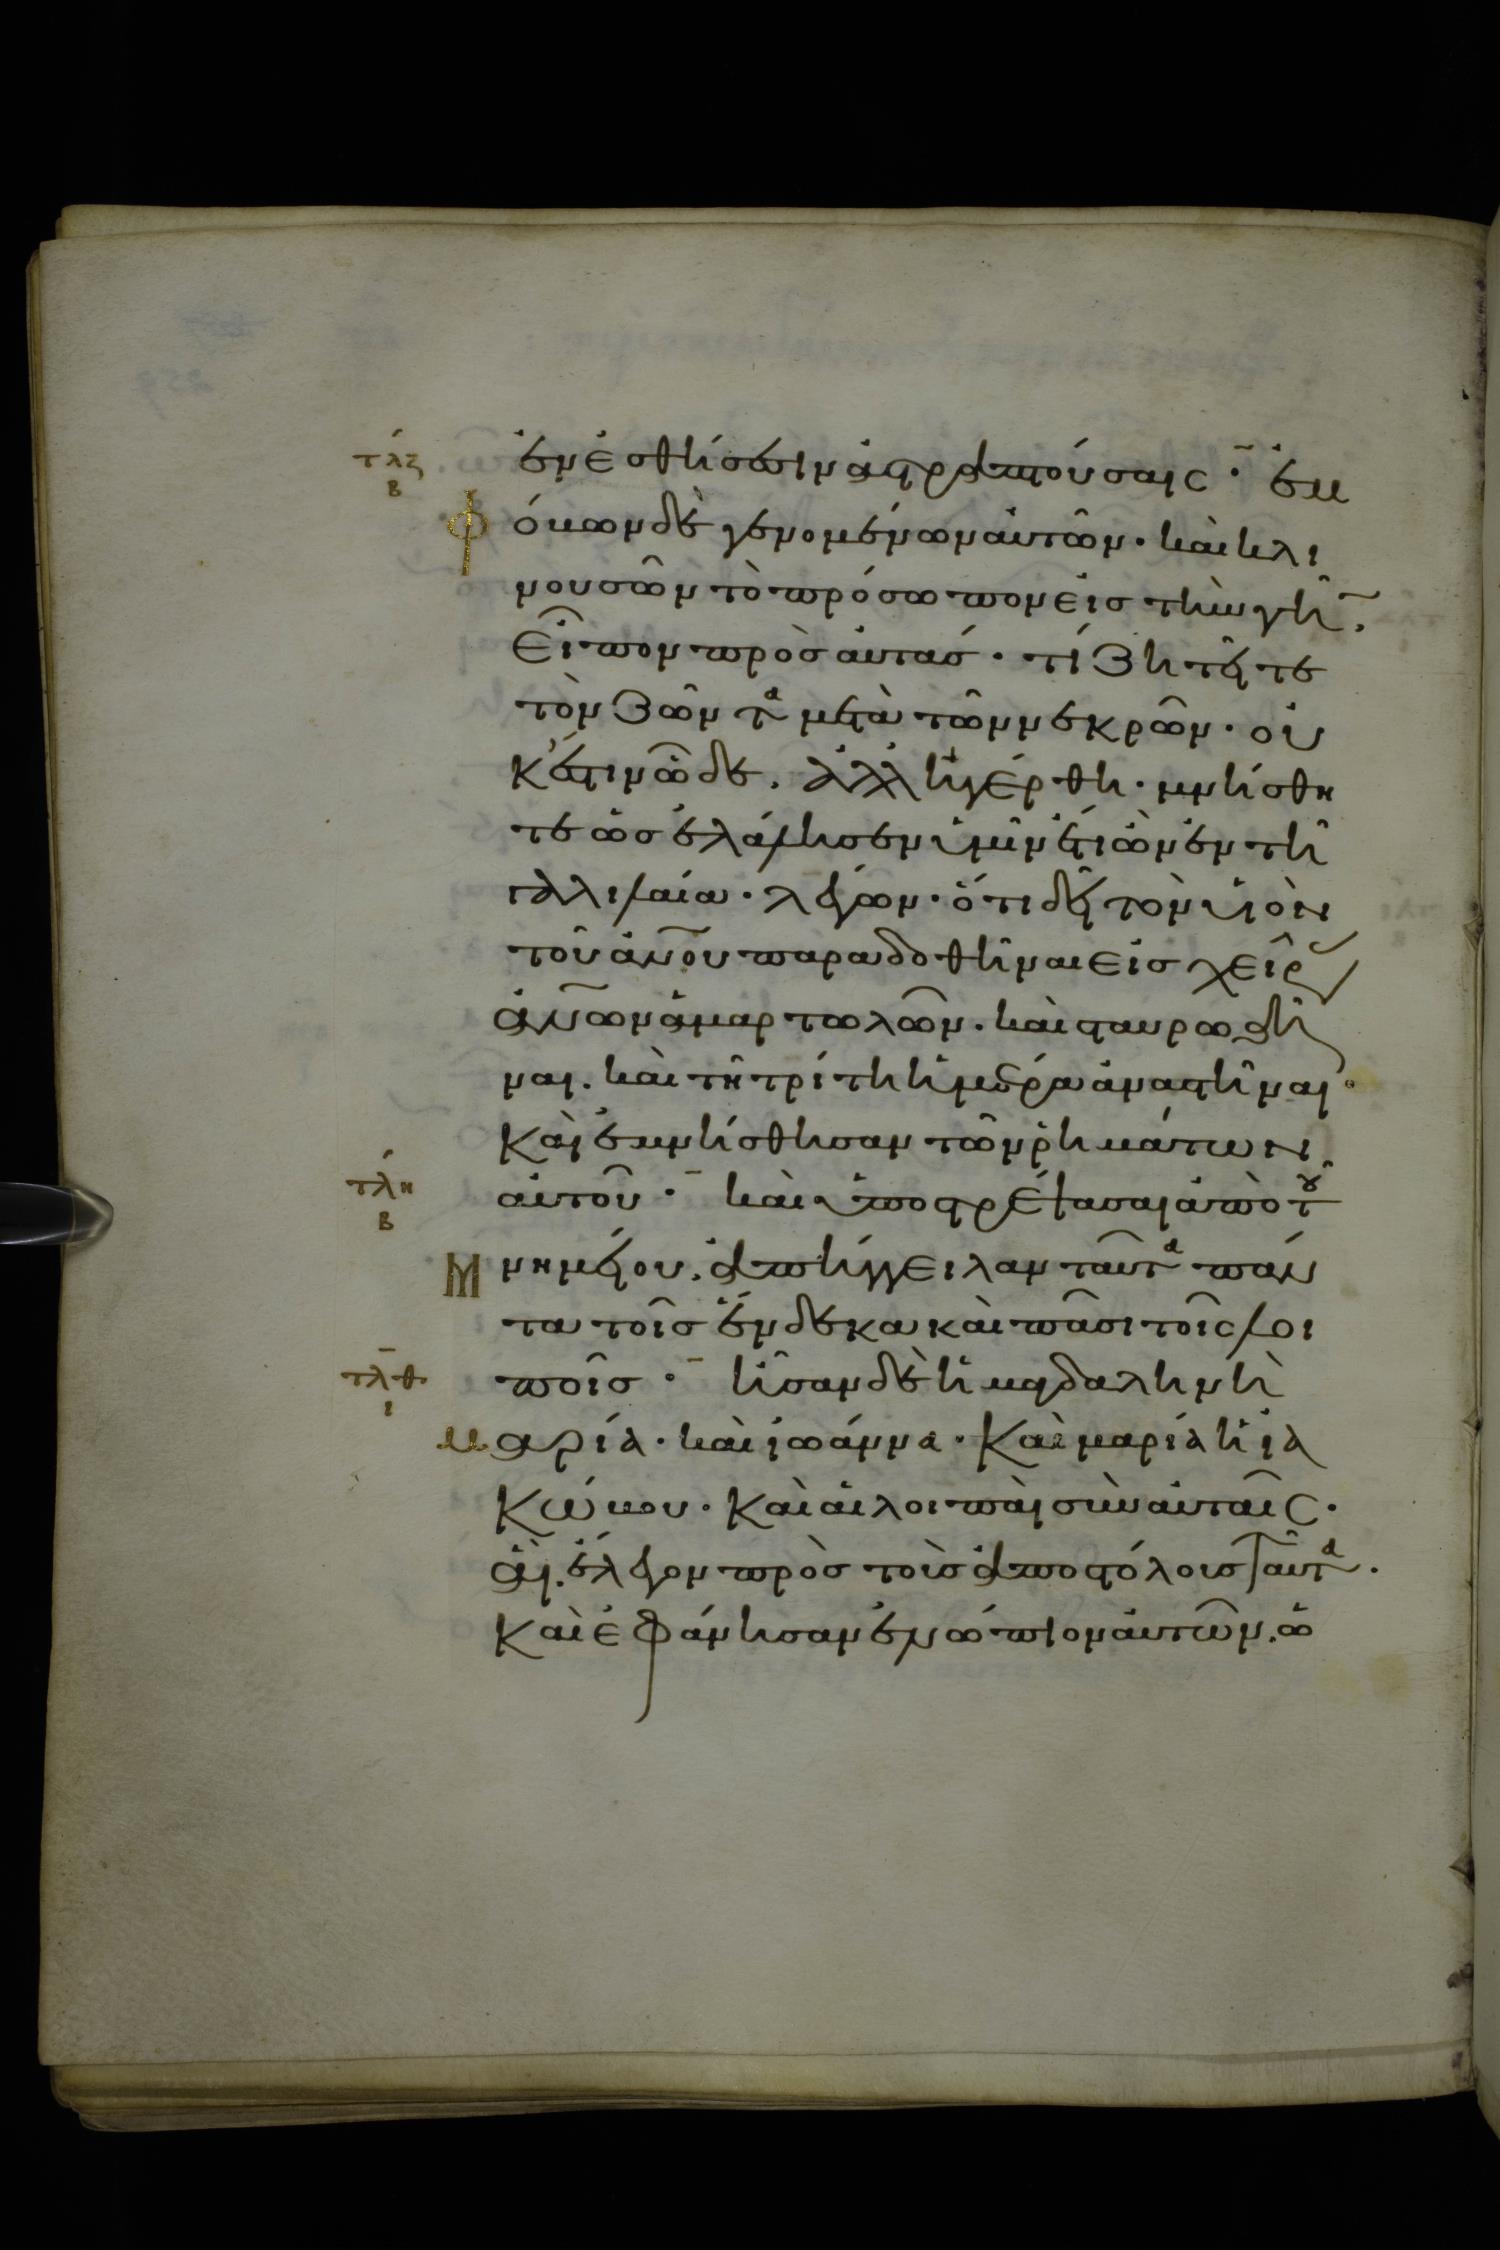 τλζ
β
ἐν ἐσθήσεσιν ἀστραπτούσαις · ἐμ
φόβων δὲ γενομένων αὐτῶν · καὶ κλι
νουσῶν τὸ πρόσωπον εἰς τὴν γῆ̅ ·
Εἶπον πρὸς αὐτάς · τί ζητεῖτε
τὸν ζῶντα μετὰ τῶν νεκρῶν · οὐ
κ ἔστιν ὧδε · ἀλλ' ἠγέρθη · μνήσθη
τε ὡς ἐλάλησεν ὑμῖν ἔτι ὢν ἐν τῆ
γαλιλαία · λέγων · ὅτι δεῖ τὸν υἱὸν
τοῦ ἀν̅ου παραδοθῆναι εἰς χεῖρ
ἀν̅ων ἁμαρτωλῶν · καὶ σταυρωθῆ
ναι · καὶ τῆ τρίτη ἡμέρα ἀναστῆναι ·
Καὶ ἐμνήσθησαν τῶν ῥημάτων
τλη
β
αὐτοῦ · καὶ ὑποστρέψασαι ἀπὸ τοῦ
Μ μνημείου · ἀπήγγειλαν ταῦτα πάν
τα τοῖς ἕνδεκα καὶ πᾶσι τοῖς λοι
τλθ
ι
ποῖς · ἦσαν δὲ ἡ μαγδαληνὴ
μαρία · καὶ ἰωάννα · Καὶ μαρία ἡ ἰα
κώβου · Καὶ αἱ λοιπαὶ σὺν αὐταῖς ·
αἳ ἔλεγον πρὸς τοὺς ἀποστόλους ταῦτα ·
Καὶ ἐφάνησαν ἐνώπιον αὐτῶν · ὡ